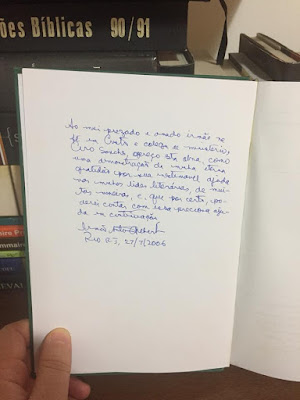 ões Bíblicas 90/91
Ao meu prezado e amado irmão na
fé em Cristo e colega de ministério,
Ciro Sanches, ofereço esta obra, como
uma demonstração de minha eterna
gratidão por sua inestimável ajuda
nas minhas lides literárias, de mui-
tas maneiras, e, que por certo, po-
derei contar com essa preciosa aju-
da em continuação
Rio RJ, 27/7/2006